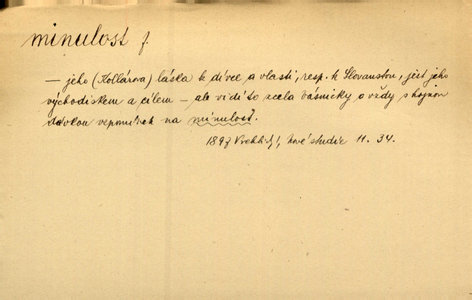 minulost f.
— jeho (Kollárova) láska k dívce a vlasti, resp. k Slovanstvu, jest jeho
východiskem a cílem — ale vidí to zcela básnicky a vždy s hojnou
dávkou vzpomínek na minulost.
1897 Vrchlický, Nové studie 11. 34.